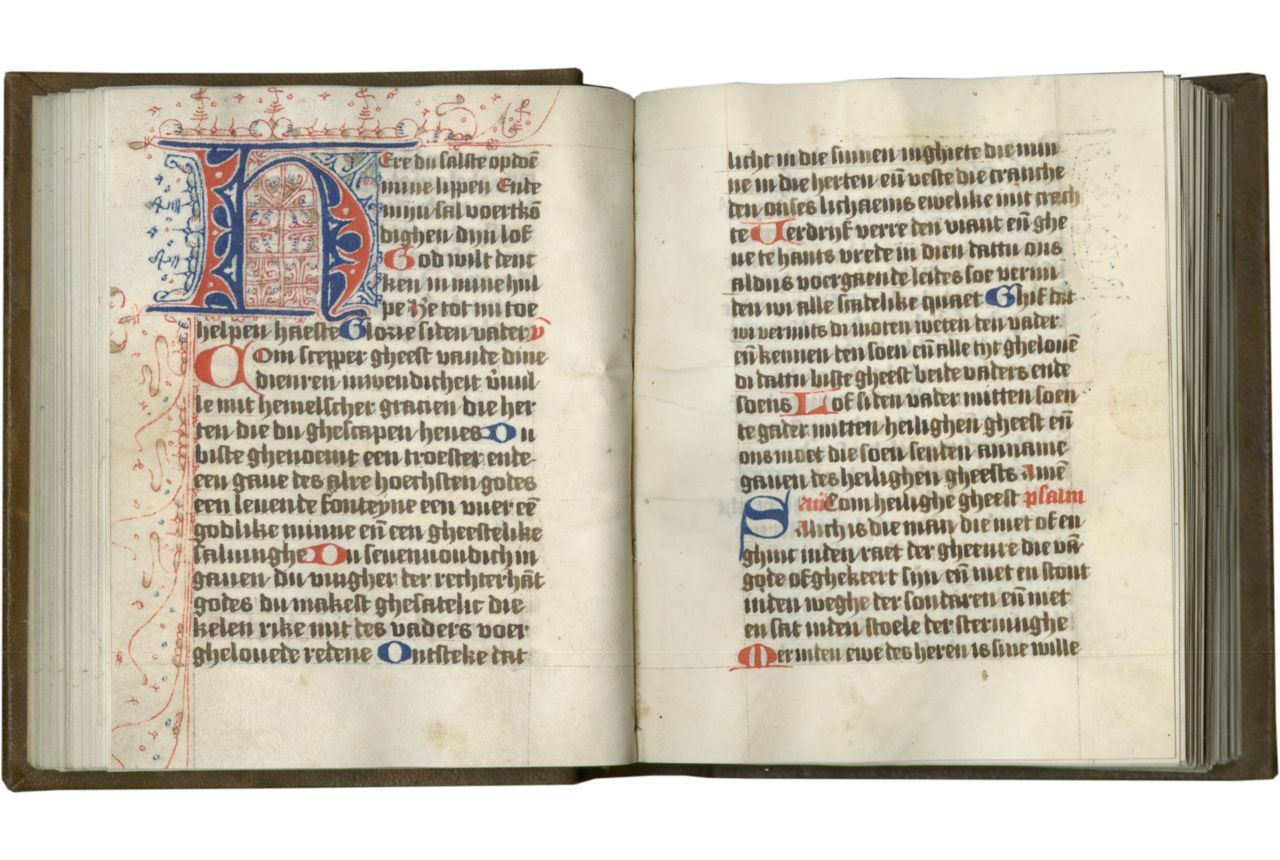 HEre du salste opdoē
mine lippen Ende
mijn sal voertkō
dighen dijn lof
God wilt denc
ken in mine hul
pe He tot mi toe
helpen haeste Glorie si den vader v̄
COm scepper gheest van de dine
dienren inwendicheit v̄uul
le mit hemelscher gracien die her
ten die du ghescapen heues Du
biste ghenoemt een troester ende
een gaue des alre hoechsten godes
een leuende fonteyne een vuer eē
godlike minne eñ een gheestelike
saluinghe Du seuenuoudich in
gauen du vingher der rechterhāt
godes du makest ghesatelic die
kelen rike mit des vaders voer
ghelouede redene Ontsteke dat
licht in die sinnen inghiete die min
ne in die herten eñ veste die cranche
den onses lichaems ewelike mit crach
te Uerdrijf verre den viant eñ ghe
ue te hants vrede in dien dattu ons
aldus voergaende leides soe vermi
den wi alle scadelike quaet Ghif dat
wi vermits di moten weten den vader
eñ kennen den soen eñ alle tijt ghelouē
di dattu biste gheest beide vaders ende
soens Lof si den vader mitten soen
te gader mitten heilighen gheest eñ
ons moet die soen senden anname
gauen des heilighen gheests Amē
Com heilighe gheest psalm
SAlich is die man die niet of en
ghinc inden raet der gheenre die vā
gode of ghekeert sijn eñ niet en stont
inden weghe der sondaren eñ niet
en sat inden stoele der steruinghe
Mer inden ewe des heren is sine wille